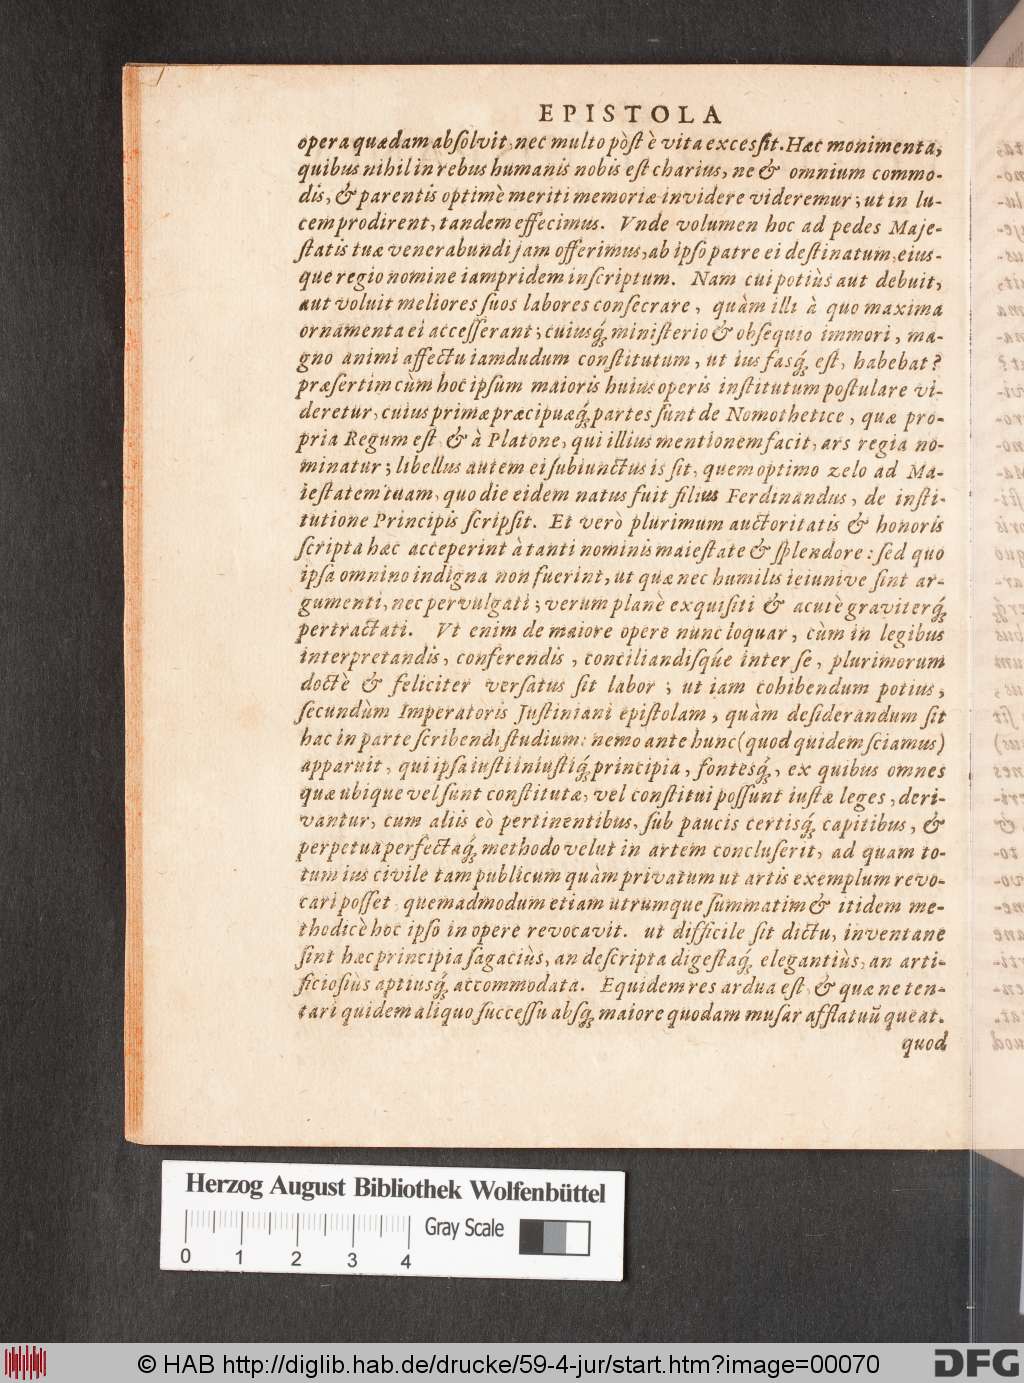 EPISTOLA
opera quædam abſolvit, nec multo pòſt è vita exceſsit. Hæc monimenta,
quibus nihil in rebus humanis nobis eſt charius, ne & omnium commo-
dis, & parentis optimè meriti memoriæ invidere videremur; ut in lu-
cem prodirent, tandem effecimus. Vnde volumen hoc ad pedes Maje-
ſtatis tuæ venerabundi jam offerimus, ab ipſo patre ei deſtinatum, eius-
que regio nomine iampridem inſcriptum. Nam cui potiùs aut debuit,
aut voluit meliores ſuos labores conſecrare, quàm illi à quo maxima
ornamenta ei acceſſerant; cuiusq́; miniſterio & obſequio immori, ma-
gno animi affectu iamdudum conſtitutum, ut ius fasq́; eſt, habebat?
præſertim cùm hoc ipſum maioris huius operis inſtitutum poſtulare vi-
deretur, cuius primæ præcipuæq́; partes ſunt de Nomothetice, quæ pro-
pria Regum eſt, & à Platone, qui illius mentionem facit, ars regia no-
minatur; libellus autem ei ſubiunctus is ſit, quem optimo zelo ad Ma-
ieſtatem tuam, quo die eidem natus fuit filius Ferdinandus, de inſti-
tutione Principis ſcripſit. Et verò plurimum auctoritatis & honoris
ſcripta hæc acceperint à tanti nominis maieſtate & ſplendore: ſed quo
ipſa omnino indigna non fuerint, ut quæ nec humilis ieiunive ſint ar-
gumenti, nec pervulgati; verum planè exquiſiti & acutè graviterq́;
pertractati. Vt enim de maiore opere nunc loquar, cùm in legibus
interpretandis, conferendis, conciliandiſq́ue inter ſe, plurimorum
doctè & feliciter verſatus ſit labor; ut iam cohibendum potius,
ſecundùm Imperatoris Juſtiniani epiſtolam, quàm deſiderandum ſit
hac in parte ſcribendi ſtudium: nemo ante hunc (quod quidem ſciamus)
apparuit, qui ipſa iuſti iniuſtiq́; principia, fontesq́;, ex quibus omnes
quæ ubique vel ſunt conſtitutæ, vel conſtitui poſſunt iuſtæ leges, deri-
vantur, cum aliis eò pertinentibus, ſub paucis certisq́; capitibus, &
perpetua perfectaq́; methodo velut in artem concluſerit, ad quam to-
tum ius civile tam publicum quàm privatum ut artis exemplum revo-
cari poſſet, quemadmodum etiam utrumque ſummatim & itidem me-
thodicè hoc ipſo in opere revocavit. ut difficile ſit dictu, inventane
ſint hæc principia ſagaciùs, an deſcripta digeſtaq́; elegantiùs, an arti-
ficioſiùs aptiusq́; accommodata. Equidem res ardua eſt, & quæ ne ten-
tari quidem aliquo ſucceſſu abſq́; maiore quodam muſar afflatuũ queat.
quod
Herzog August Bibliothek Wolfenbüttel
Gray Scale
0 1 2 3 4
© HAB http://diglib.hab.de/drucke/59-4-jur/start.htm?image=00070
DFG